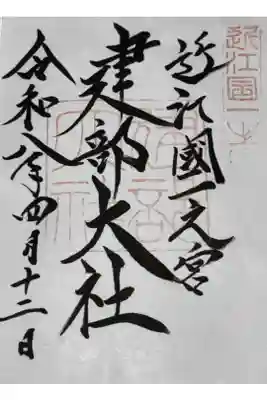 近江国一
近江國一之宮
建部大社
令和八年四月十二日